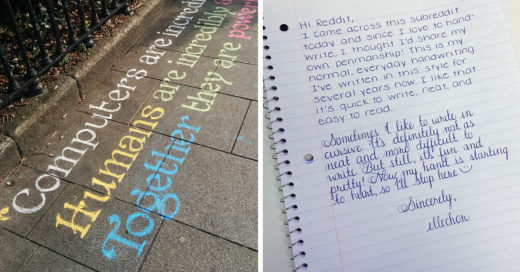 "Computers are incredi
Humans are incredibly s
Together they are power
Hi Reddit,
I came across this subreddit
today and since I love to hand-
write, I thought I'd share my
own penmanship! This is my
normal, everyday handwriting
I've written in this style for
several years now. I like that
it's quick to write, neat, and
easy to read.
Sometimes I like to write in
cursive. It's definitely not as
neat and more difficult to
write. But still, it's fun and
pretty! Now my hand is starting
to hurt, so I'll stop here
Sincerely,